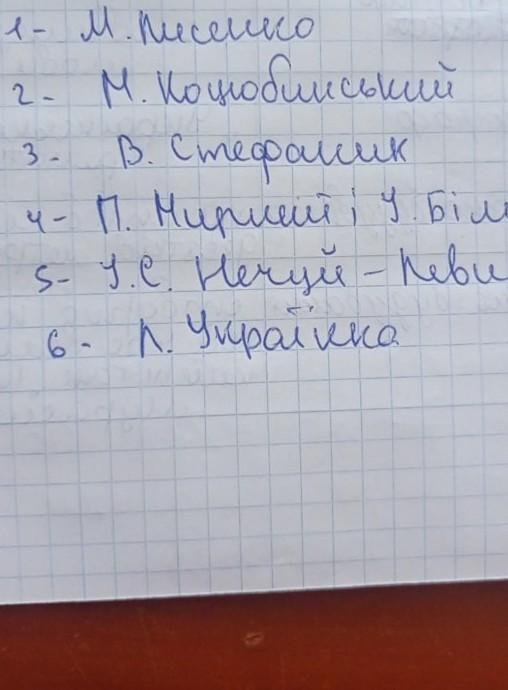 1- М. Лисенко
2- М. Коцюбинський
3- В. Стефаник
4- П. Мирний і І. Біл
5- І.С. Нечуй - Леви
6- Л. Українка